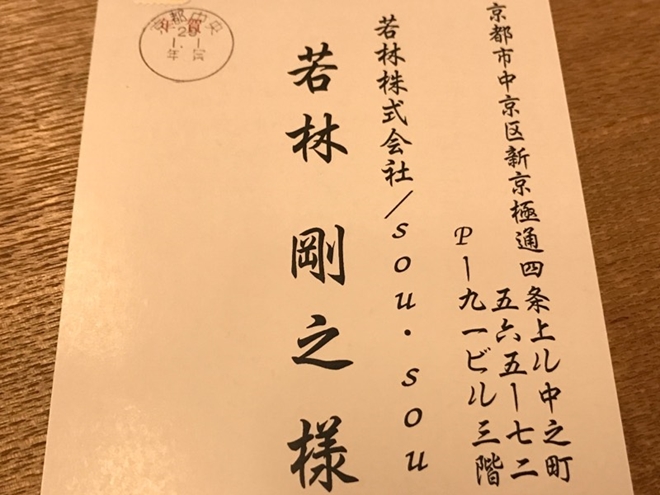 京都市中京区新京極通四条上ル中之町
五六五ー七二
Pー九一ビル三階
若林株式会社/sou・sou
若林 剛之 様
京都中央
年賀
29
1.1